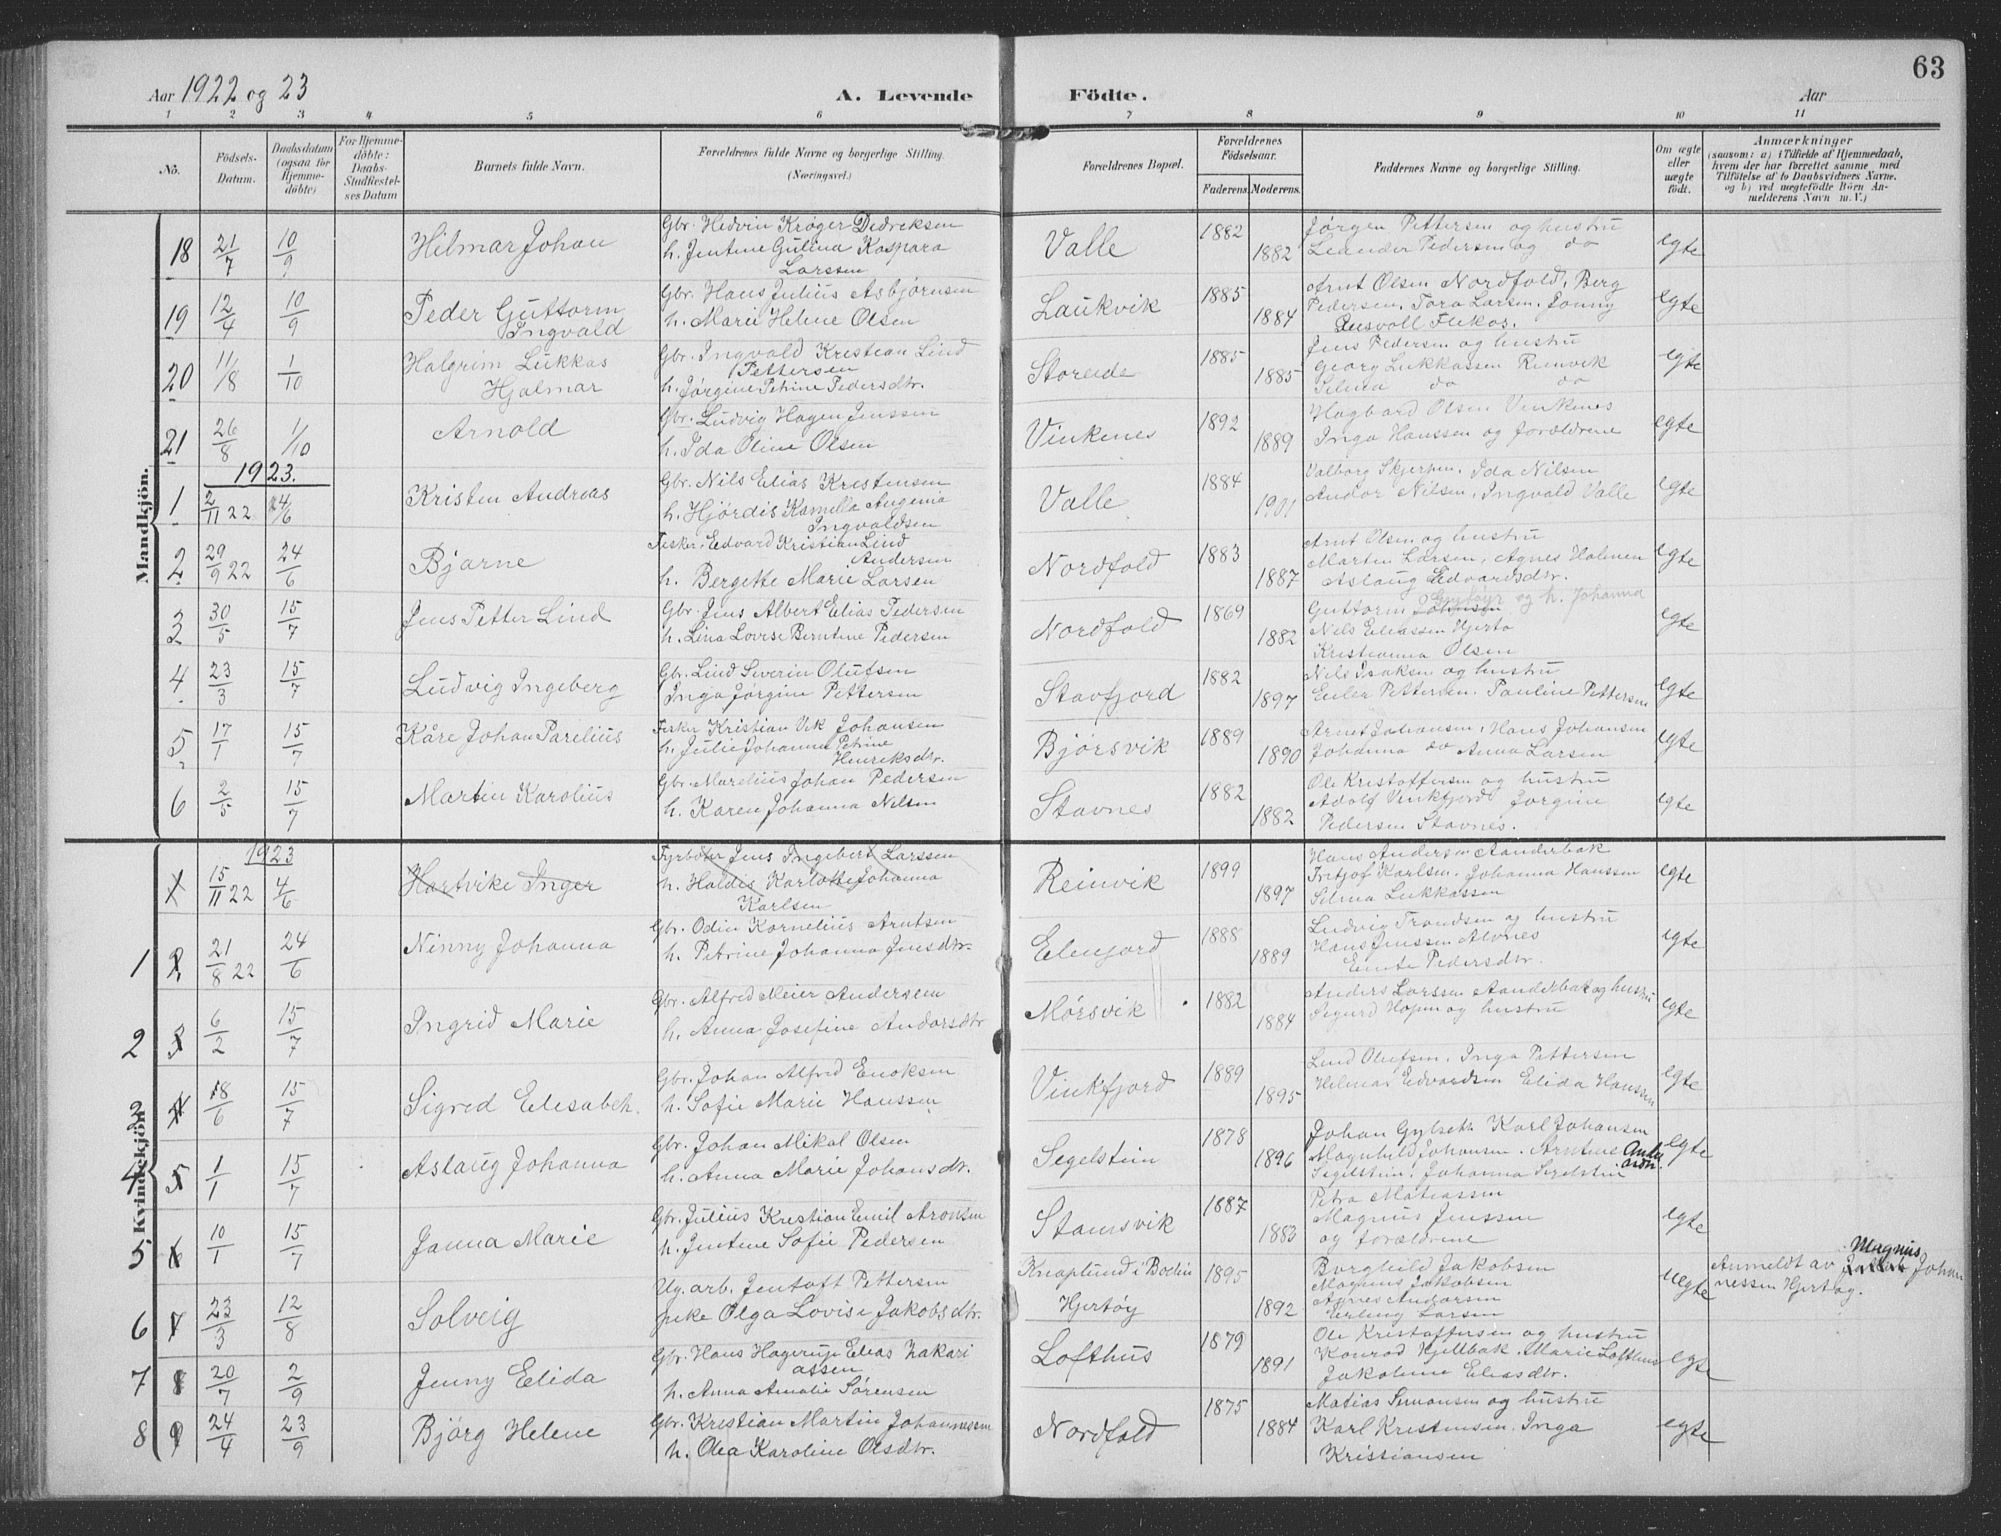 63
Aar 1922 og 23
A. Levende Födte.
Aar
1 2 3 4 5 6 7 8 9 10 11
No.
Födsels-Datum.
Daabsdatum (ogsaa for Hjemmedöbte)
For Hjemmedöbte: Daabs-Stadfæstelses Datum
Barnets fulde Navn.
Forældrenes fulde Navne og borgerlige Stilling. (Næringsvei.)
Forældrenes Bopæl.
Forældrenes Födselsaar.
Faderens.
Moderens.
Faddernes Navne og borgerlige Stilling.
Om ægte eller uægte födt.
Anmærkninger
(saasom: a) i Tilfælde af Hjemmedaab, hvem der har forrettet samme med Tilföielse af to Daabsvidners Navne, og b) ved uægtefödte Börn Anmelderens Navn m. V.)
Mandkjön.
18 21/7 10/9 Hilmar Johan
Gbr. Hedvin Krøger Dedreksen
h. Jentine Gulina Kaspara
Larssen
Valle 1882 1882
Jørgen Pettersen og hustru
Leander Pedersen og do
egte
19 12/4 10/9 Peder Guttorm
Ingvald
Gbr. Hans Julius Asbjørnsen
h. Marie Helene Olsen
Laukvik 1885 1884
Arnt Olsen Nordfold, Berg
Pedersen, Tora Larsen, Jonny
egte
20 11/8 1/10 Halgrim Lukkas
Hjalmar
Gbr. Ingvald Kristian Lind
Pettersen
h. Jørgine Petrine Pedersdtr.
Storeide 1885 1885
Jens Pedersen og hustru
Georg Lukkassen Reinvik
Selma do do
egte
21 26/8 1/10 Arnold
Gbr. Ludvig Hagen Jenssen
h. Ida Oline Olsen
Vinkenes 1892 1889
Hagbard Olsen Vinkenes
Inga Hanssen og forældrene
egte
1923.
1 2/11 22 24/6 Kristen Andreas
Gbr. Nils Elias Kristensen
h. Hjørdis Kamilla Augenia
Ingvaldsen
Valle 1884 1901
Valborg Skjerpen, Ida Nilsen
Andor Nilsen, Ingvald Valle
egte
2 29/9 22 24/6 Bjarne
Fisker Edvard Kristian Lind
Andersen
h. Bergette Marie Larsen
Nordfold 1883 1887
Arnt Olsen og hustru
Martin Larsen, Agnes Holmen
Aslaug Edvardsdtr.
egte
3 30/5 15/7 Jens Petter Lind
Gbr. Jens Albert Elias Pedersen
h. Lina Lovise Berntine Pedersen
Nordfold 1869 1882
Guttorm Johansen og h. Johanna
Nils Eliassen Hjertø
Kristianna Olsen
egte
4 23/3 15/7 Ludvig Ingeberg
Gbr. Lind Severin Olufsen
Inga Jørgine Pettersen
Stavfjord 1882 1897
Nils Isaksen og hustru
Euler Pettersen. Pauline Pettersen
egte
5 17/1 15/7 Kåre Johan Parelius
Fisker Kristian Vik Johansen
h. Julie Johanna Petrine
Henriksdtr.
Bjørsvik 1889 1890
Arnet Johansen, Hans Johansen
Johanna do Anna Larsen
egte
6 2/5 15/7 Martin Karolius
Gbr. Marelius Johan Pedersen
h. Karen Johanna Nilsen
Stavnes 1882 1882
Ole Kristoffersen og hustru
Adolf Vinkfjord Jørgine
Pedersen Stavnes.
egte
Kvindekjön.
1923
1 15/11 22 4/6 Hartvike Inger
Fyrbøter Jens Ingebert Larssen
h. Haldis Karlotte Johanna
Karlsen
Reinvik 1899 1897
Hans Andersen Aanderbak
Fritjof Karlsen. Johanna Hanssen
Selma Lukkassen
egte
1 2 21/8 22 24/6 Ninny Johanna
Gbr. Odin Kornelius Arntsen
h. Petrine Johanna Jensdtr.
Elenjord 1888 1889
Ludvig Trondsen og hustru
Hans Jenssen Alvnes
Pedersdtr.
egte
2 3 6/2 15/7 Ingrid Marie
Gbr. Alfred Meier Andersen
h. Anna Josefine Andorsdtr
Mørsvik 1882 1884
Anders Larssen Aanderbak og hustru
Sigurd Hopen og hustru
egte
3 4 18/6 15/7 Sigred Elisabeh.
Gbr. Johan Alfred Enoksen
h. Sofie Marie Hanssen
Vinkfjord 1889 1895
Lind Olufsen. Inga Pettersen
Helmar Edvardsen Elida Hanssen
egte
4 5 1/1 15/7 Aslaug Johanna
Gbr. Johan Mikal Olsen
h. Anna Marie Johansdtr.
Segelstein 1878 1896
Johan Gylseth Karl Johansen
Magnhild Johansen. Arntine
Segelstein. Johanna Segelstein
egte
5 6 10/1 15/7 Janna Marie
Gbr. Julius Kristian Emil Aronsen
h. Jentine Sofie Pedersen
Stamsvik 1887 1883
Petra Matiassen
Magnus Jenssen
og forældrene
egte
6 7 23/3 12/8 Solveig
Ug. arb. Jentoft Pettersen
pike Olga Lovise Jakobsdtr.
Knaplund i Bodin
Hjertøy
1895 1892
Borghild Jakobsen
Magnus Jakobsen
Agnes Andersen
Erling Larsen
uegte
Magnus
Anmeldt av Johan
nessen Hjertøy.
7 8 20/7 2/9 Jenny Elida
Gbr. Hans Hagerup Elias Zakari
assen
h. Anna Amalie Sørensen
Lofthus 1879 1891
Ole Kristoffersen og hustru
Konrad Hjellbak. Marie Lofthus
Jakobine Eliasdtr.
egte
8 9 24/4 23/9 Bjørg Helene
Gbr. Kristian Martin Johannessen
h. Olea Karoline Olsdtr.
Nordfold 1875 1884
Matias Simonsen og hustru
Karl Kristensen. Inga
Kristiansen
egte